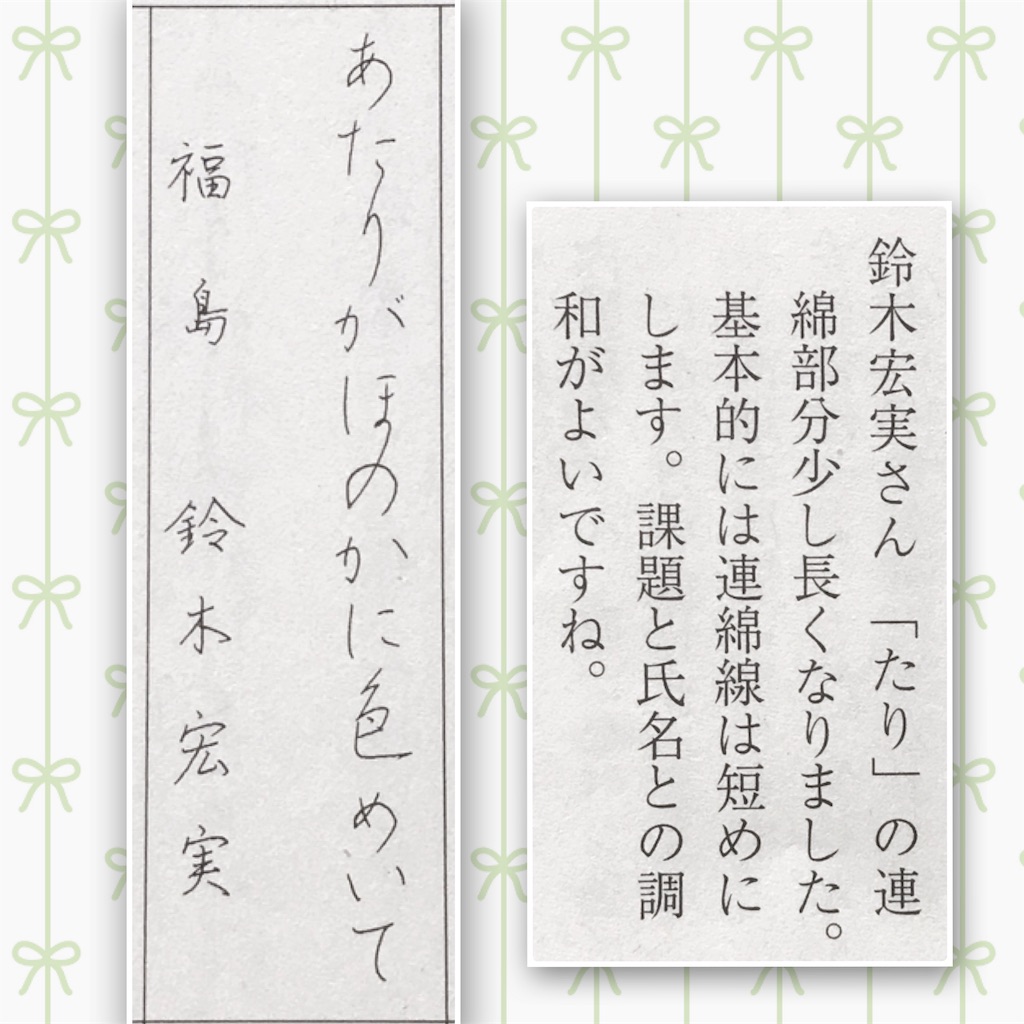 あたりがほのかに色めいて
福島 鈴木宏実
鈴木宏実さん 「たり」の連
綿部分少し長くなりました。
基本的には連綿線は短めに
します。課題と氏名との調
和がよいですね。